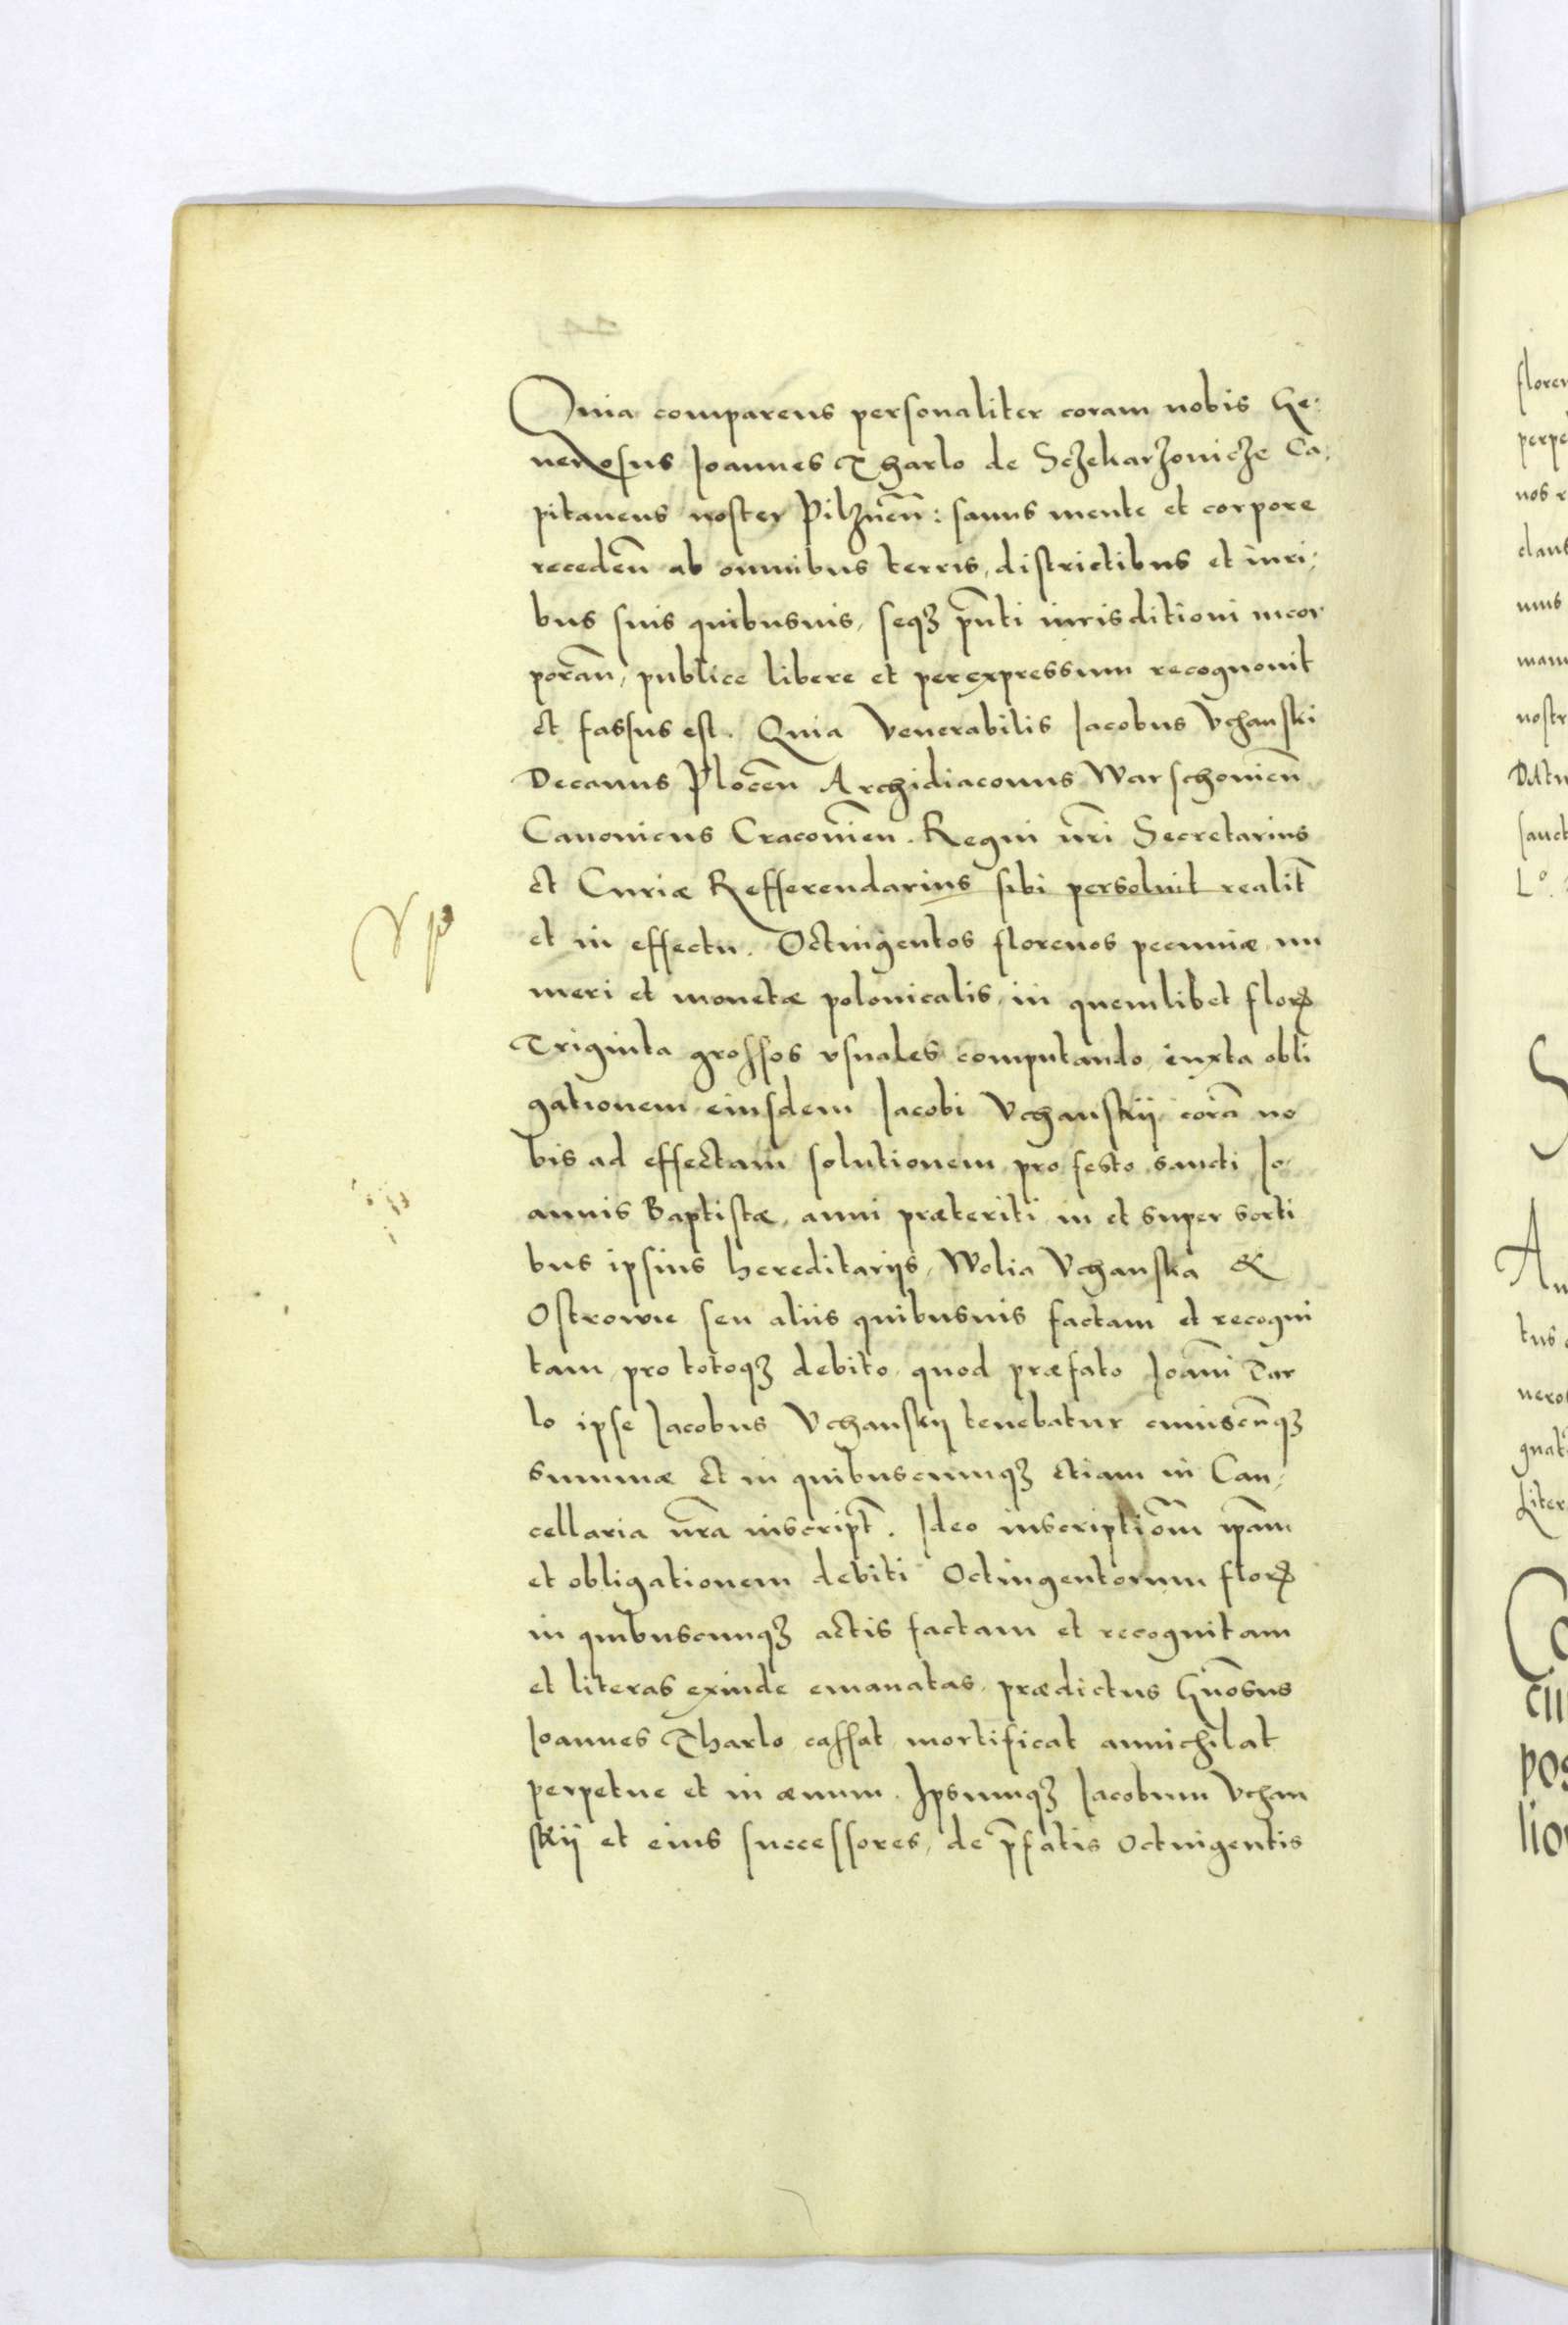 Quia comparens personaliter coram nobis Ge:
nerosus Joannes Tharlo de Sczekarzovicze Ca:
pitaneus noster Pilznen̄: sanus mente et corpore
recedēn ab omnibus terris, districtibus et iuri:
bus suis quibusuis, seqꝫ pn̄ti iurisditioni incor
porān, publice libere et per expressum recognouit
et fassus est. Quia Venerabilis Jacobus Vchanski
Decanus Plocēn Archidiaconus Warschouiēn
Canonicus Cracouiēn. Regni nr̄i Secretarius
et Curiæ Refferendarius sibi persoluit realit̄
et in effectu. Octingentos florenos pecuniæ nu
meri et monetæ polonicalis, in quemlibet flor̄
Triginta grossos vsuales computando, iuxta obli
gationem eiusdem Jacobi Vchanskij corā no
bis ad effectam solutionem pro festo sancti Jo
annis Baptistæ, anni præteriti in et super sorti
bus ipsius hereditarijs, Wolia Vchanska &
Ostrowie seu aliis quibusuis factam et recogni
tam, pro totoqꝫ debito, quod præfato Joan̄i Tar
lo ipse Jacobus Vchanskij tenebatur cuiuscūqꝫ
summæ et in quibuscumqꝫ etiam in Can:
cellaria nr̄a inscript̄. Ideo inscriptiōm ip̄am
et obligationem debiti Octingentorum flor̄
in quibuscunqꝫ actis factam et recognitam
et literas exinde emanatas, prædictus Gn̄osus
Joannes Tharlo cassat mortificat annichilat
perpetue et in æuum. Ipsumqꝫ Jacobum Vchan
skij et eius successores, de p̄fatis Octingentis